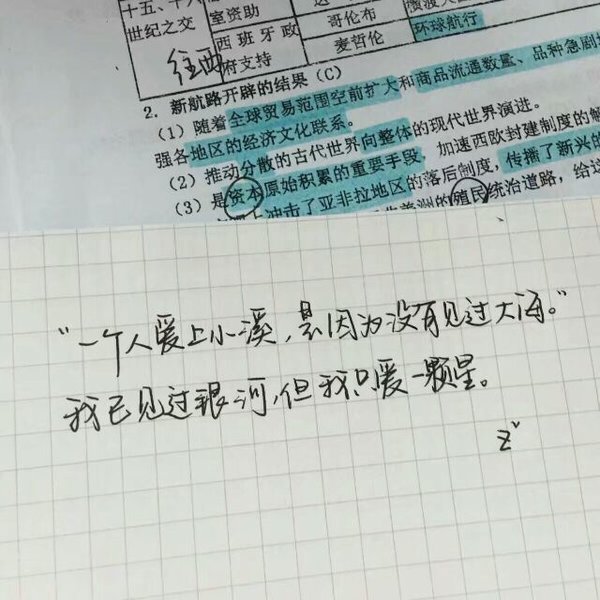 十五、十六 室资助 哥伦布
世纪之交 西班牙政 麦哲伦 环球航行
往西 府支持
2. 新航路开辟的结果(C)
(1) 随着全球贸易范围空前扩大和商品流通数量、品种急剧
强各地区的经济文化联系。
(2) 推动分散的古代世界向整体的现代世界演进。
(3) 是资本原始积累的重要手段,加速西欧封建制度的解
冲击了亚非拉地区的落后制度,传播了新兴的
美洲的殖民统治道路,给这
“一个人爱上小溪,是因为没有见过大海。”
我已见过银河,但我只爱一颗星。
z